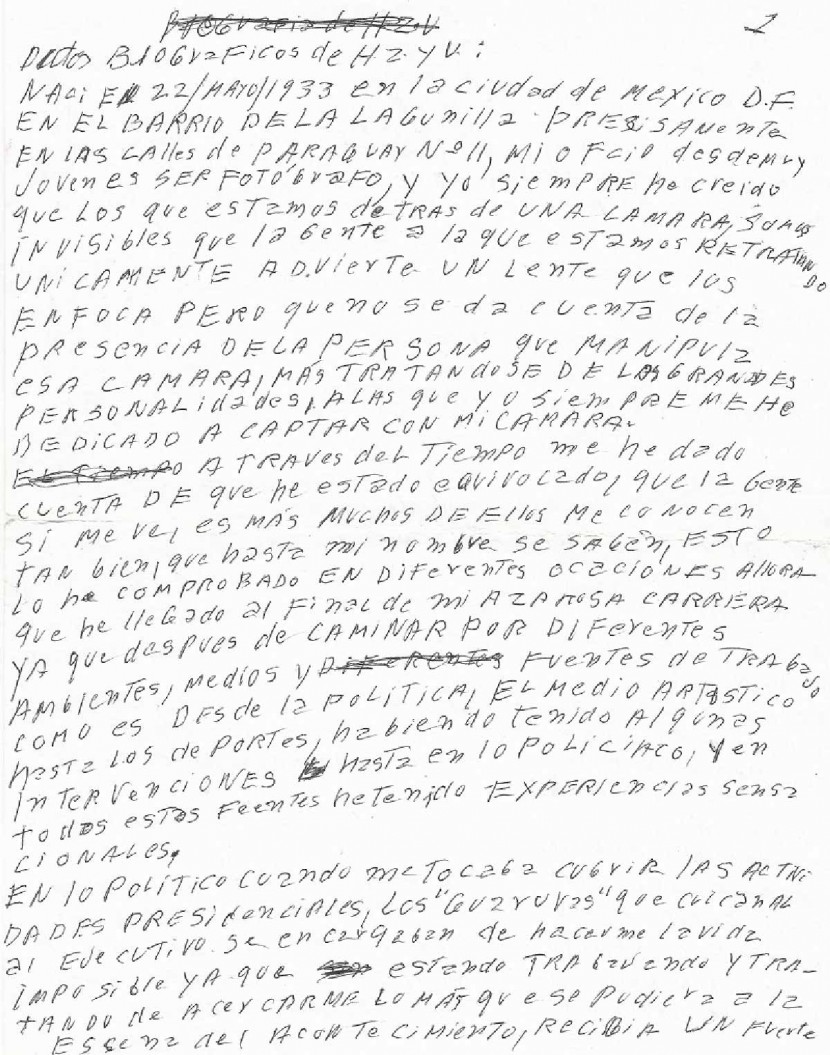 2
Datos BioGraficos de H Z. y V. :
NACi EN 22/MAYO/1933 en la ciudad de Mexico D.F.
EN EL BARRIO DE LA LAGunilla PRESISAMenTe
EN LAS CAlles de PARAGUAY Nº 11, Mi oFcio desde muy
Joven es SER FOTÓGrAFO, y yo siEMPRE he creido
que Los que esTamos deTRAS de UNA CAMARA, SOMOS
INVISIBLES que la Gente a la que estamos RETRATANDO
UNICAMENTE ADVierTe UN Lente que los
ENFOCA PERO que no se da cuenta de la
PRESenciA DE LA PERSONA que MANIPULA
ESA CAMARA, MÁS TRATANdoSE DE LAS GRANDES
PERSONALidades, A LAS que yo SiemPRE ME HE
DEDICADO A CAPTAR CON Mi CAMARA.
A TRAVES deL Tiempo me he dado
cuenTA DE que he estado equivocado, que la Gente
Si me ve, es MÁS MUCHOS DE Ellos Me conocen
TAN bien, que hasta mi nombre se SABEN, ESTO
Lo he COMPROBADO EN DiFerenTes OCACIONES AHORA
que he lleGado al Final de mi AZAROSA CARRERA
YA que despues de CAMINAR POR DIFerenTES
AMBIENTES, Medios y FuenTes de TRABAJO
COMO es DESde la POLÍTICA, EL Medio ARTISTICO
hasTa Los dePORTES, habiendo tenido Algunas
InTERVenciONES hasTa en lo POLICIACO, y en
todas estas Feentes he tenido EXPERIencias sensa
CIONALes.
EN lo POLÍTICO cuando me Tocaba cubrir LAS ACTIVI
DADES PRESidenciALES, Los "Guaruras" que cuidan AL
al EJECUTIVO se encargaban de hacerme la vida
IMPOSible YA que estando TRABaJando Y TRA-
TANDO de AcerCARME LO MÁS que se Pudiera a la
ESSena deL ACONTECIMIENTO, RECIBIA UN Fuerte